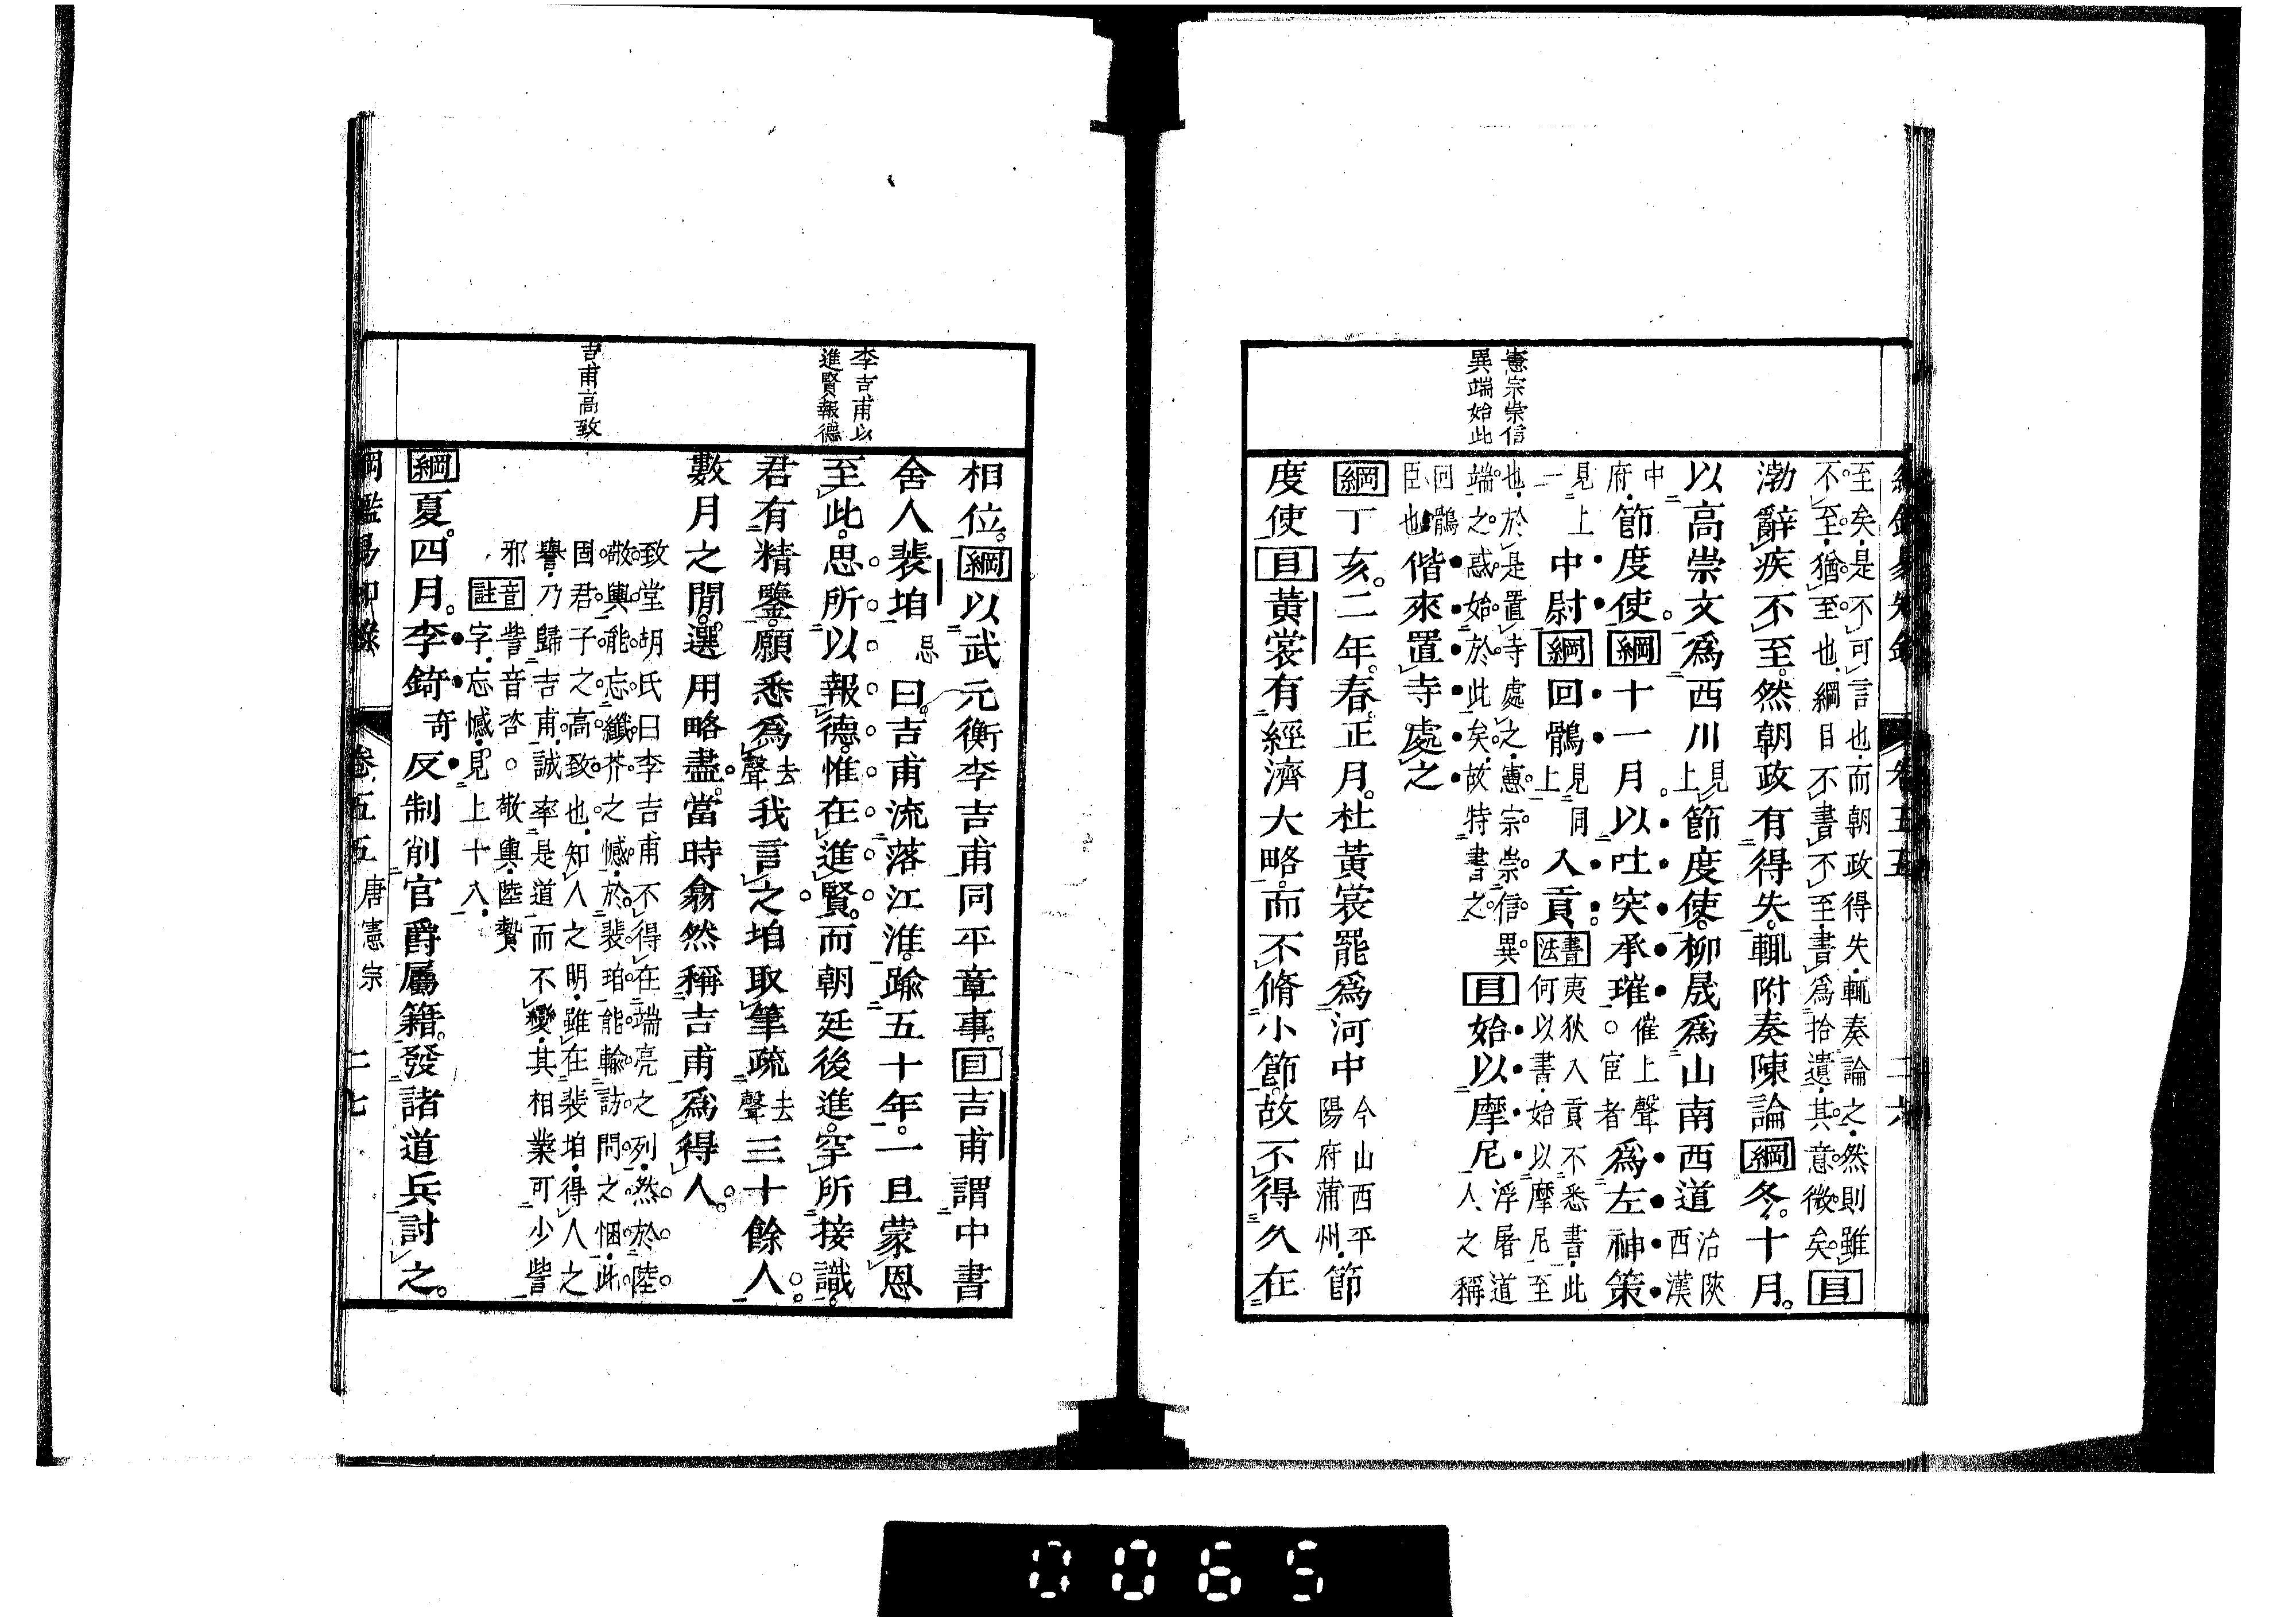 憲宗崇信
異端始此
綱鑑易知錄 卷五五 二六
至矣是不可言也而朝政得失輒奏論之然則雖
不至猶至也綱目不書不至書爲拾遺其意微矣目
渤辭疾不至然朝政有得失輒附奏陳論綱冬十月
以高崇文爲西川見上節度使柳晟爲山南西道治陝西漢
中府節度使綱十一月以吐突承璀催上聲○宦者爲左神策
見上一中尉綱回鶻見同上入貢書法夷狄入貢不悉書此何以書始以摩尼至
也於是置寺處之憲宗崇信異端之惑始於此矣故特書之目始以摩尼浮屠道人之稱
回鶻臣也偕來置寺處之
綱丁亥二年春正月杜黃裳罷爲河中今山西平陽府蒲州節
度使目黃裳有經濟大略而不脩小節故不得久在
李吉甫以
進賢報德
吉甫高致
相位綱以武元衡李吉甫同平章事目吉甫謂中書
舍人裴垍忌曰吉甫流落江淮踰五十年一旦蒙恩
至此思所以報德惟在進賢而朝廷後進罕所接識
君有精鑒願悉爲去聲我言之垍取筆疏去聲三十餘人
數月之閒選用略盡當時翕然稱吉甫爲得人
致堂胡氏曰李吉甫不得在端亮之列然於陸
敬輿能忘纖芥之憾於裴垍能輸訪問之悃此
固君子之高致也知人之明雖在裴垍得人之
譽乃歸吉甫誠率是道而不變其相業可少訾
邪音訾音咨○敬輿陸贄
註字忘憾見上十八
綱夏四月李錡奇反制削官爵屬籍發諸道兵討之
綱鑑易知錄 卷五五 唐憲宗 二七
0065